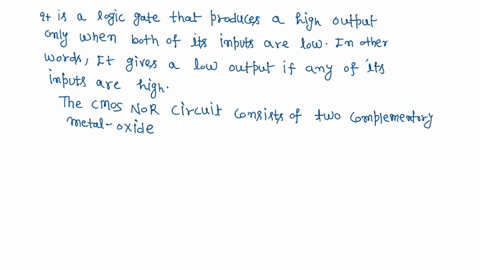 It is a logic gate that produces a high output
only when both of its inputs are low. In other
words, It gives a low output if any of its
inputs are high.
The CMOS NOR circuit consists of two complementory
metal-oxide